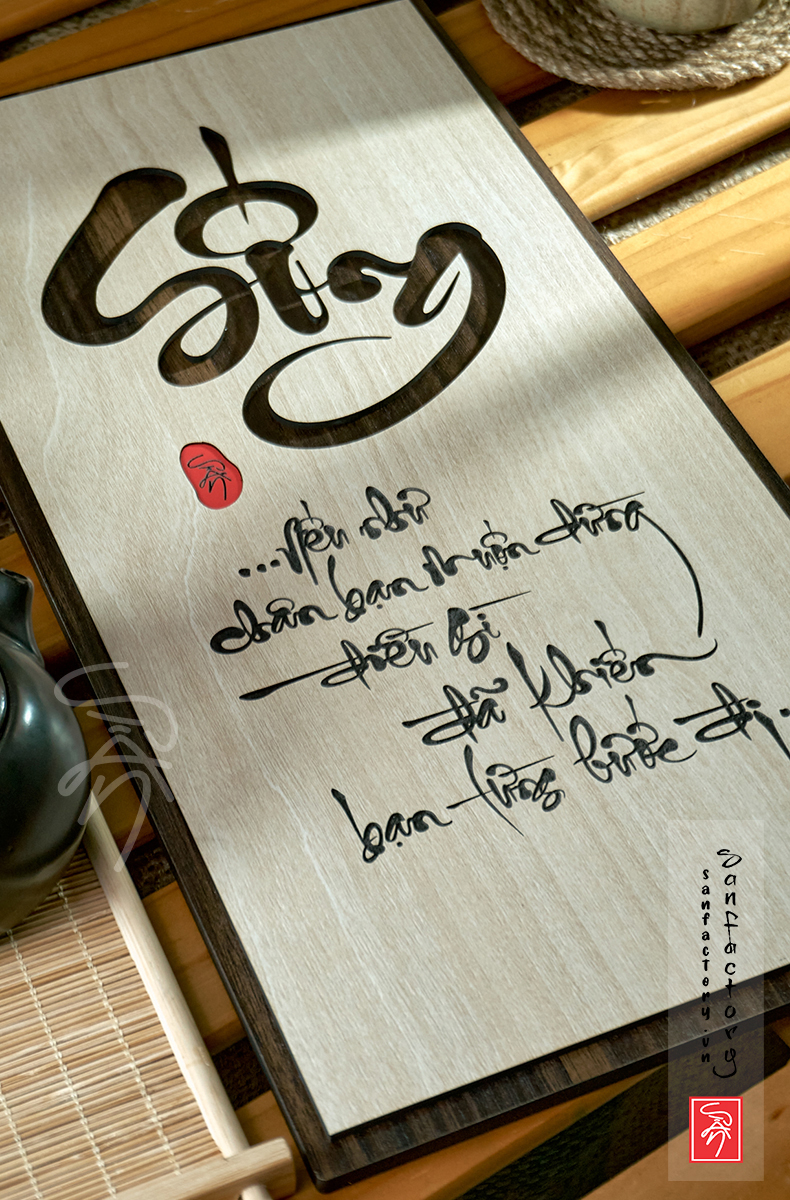 Sống
...Nếu như
chân bạn dừng
điều gì
đã khiến
bạn từng bước đi...
sanfactory.vn
Sanfactory